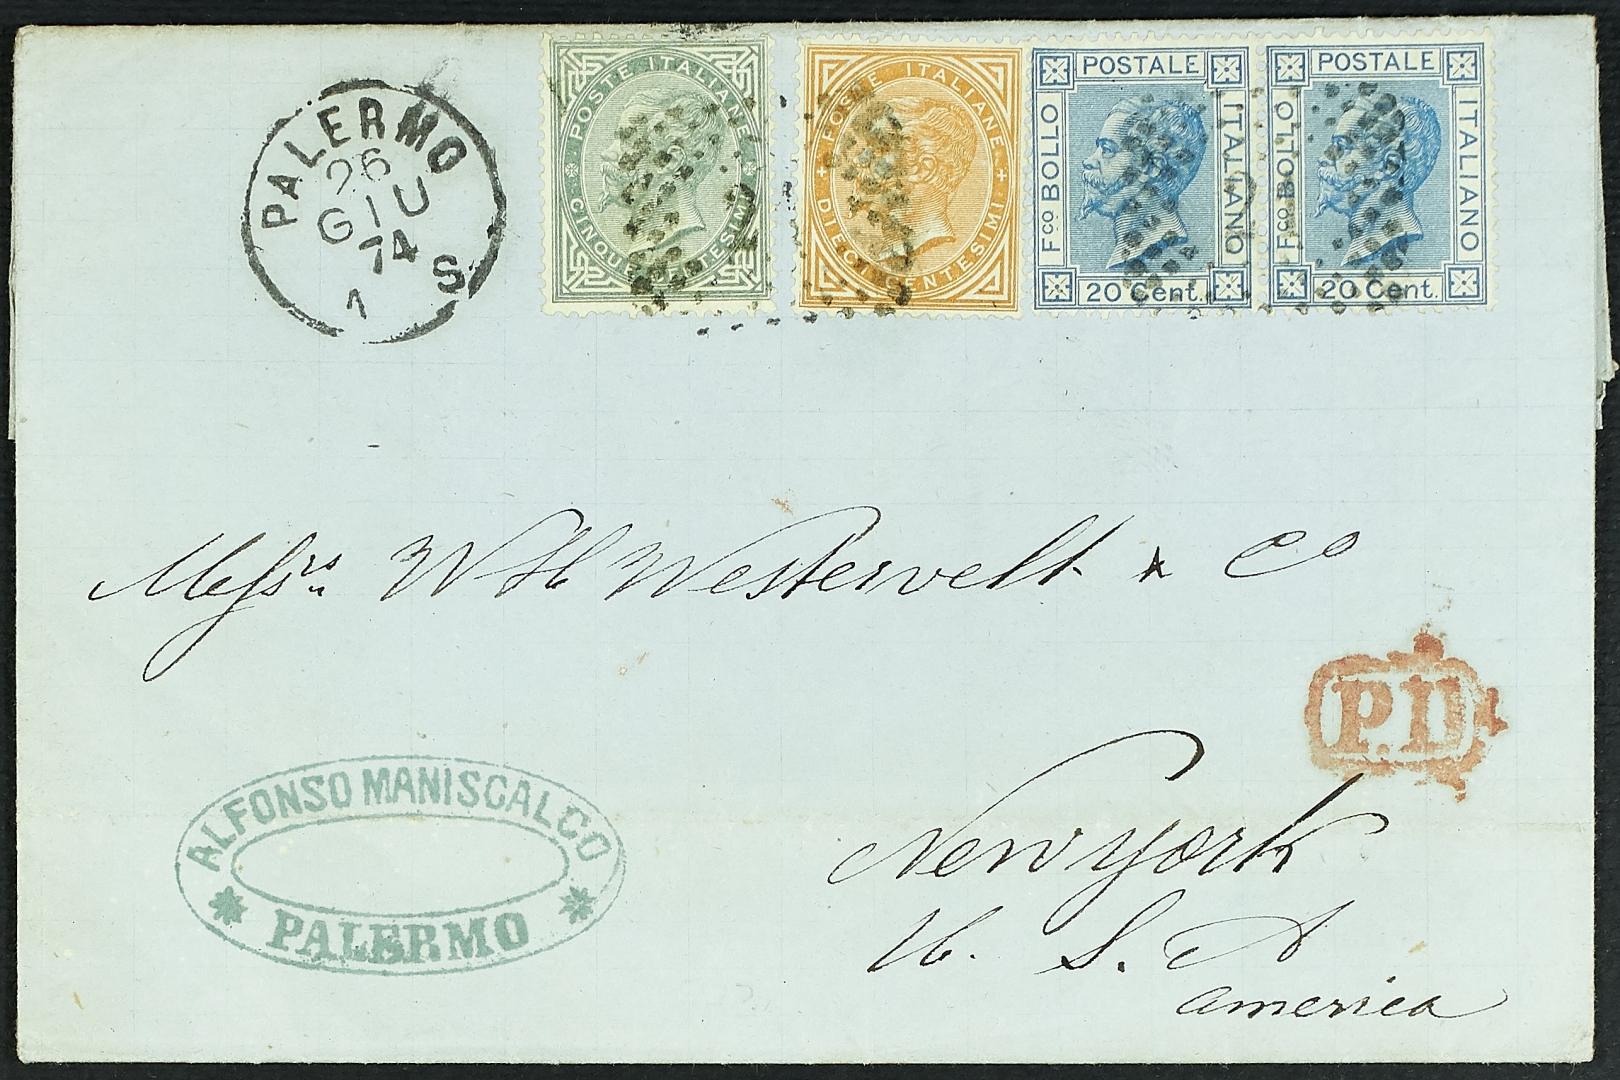 PALERMO
26
GIU
74
1 S
POSTE ITALIANE
CINQUE CENTESIMI
POSTE ITALIANE
DIECI CENTESIMI
POSTALE
Fco BOLLO
ITALIANO
20 Cent.
POSTALE
Fco BOLLO
ITALIANO
20 Cent.
Messrs. W H Westervelt & Co
P.D
New York
U. S. A
america
ALFONSO MANISCALCO
PALERMO